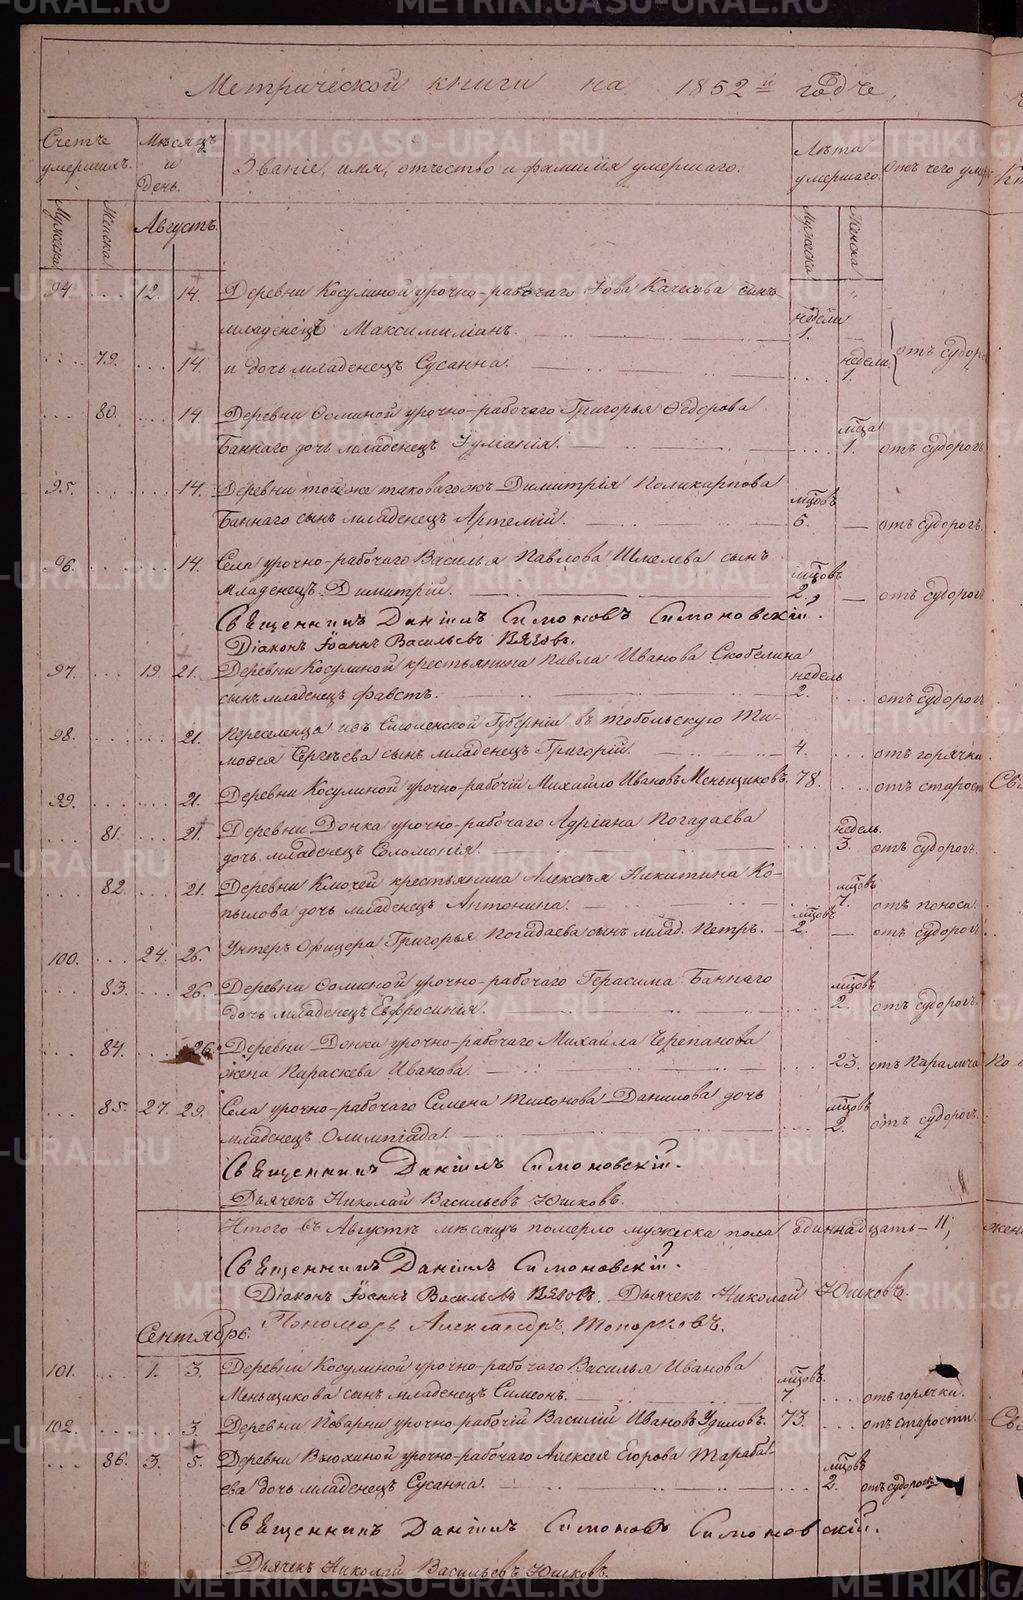 Метрической книги на 1852й годъ,
Счетъ умершихъ. Мѣсяцъ и день. Званіе, имя, отчество и фамилія умершаго. Лѣта умершаго. отъ чего умер
Мужеска Женска Августъ. Мужеска Женска
94. .... 12. 14. Деревни Косулиной урочно-рабочаго Іова Качкова сынъ
младенецъ Максимиліанъ. недѣли 1. —
.... 79. ... 14. и дочь младенецъ Сусанна. .... недели. 1. отъ судорогъ
.... 80. .... 14. Деревни Соминой урочно-рабочаго Григорья Федорова
Баннаго дочь младенецъ Іуліанія. .... мѣца 1. отъ судорогъ
95. ....... 14. Деревни той же таковагожъ Димитрія Поликарпова
Баннаго сынъ младенецъ Артемій. мѣцовъ 6. — отъ судорогъ.
96. ....... 14. Села урочно-рабочаго Василья Павлова Шмелева сынъ
младенецъ Димитрій. мѣцовъ 2., — отъ судорогъ
Священникъ Даніилъ Симоновъ Симоновскій.
Діаконъ Іоаннъ Васильевъ
97. .... 19. 21. Деревни Косулиной крестьянина Павла Иванова Скобелина
сынъ младенецъ Фавстъ. недѣль 2. ... отъ судорогъ
98. ....... 21. Переселенца изъ Смоленской Губерніи въ Тобольскую Ти-
мофея Сергѣева сынъ младенецъ Григорій. 4. ... отъ горячки.
99. ....... 21. Деревни Косулиной урочно-рабочій Михайло Ивановъ Меньщиковъ. 78. ... отъ старост Свя
81. ... 21. Деревни Донка урочно-рабочаго Адріана Погадаева
дочь младенецъ Соломонія. .... недѣль. 3. отъ судорогъ.
.... 82. ... 21. Деревни Ключей крестьянина Алексѣя Никитина Ко-
пылова дочь младенецъ Антонина. мѣцовъ 7. отъ поноса.
100. ... 24. 26. Унтеръ Офицера Григорья Погадаева сынъ млад. Петръ. мѣцовъ 2. — отъ судорогъ
.... 83. ... 26. Деревни Соминой урочно-рабочаго Герасима Баннаго
дочь младенецъ Евфросинія. .... мѣцовъ 2. отъ судорогъ.
.... 84. .... 26. Деревни Донка урочно-рабочаго Михайла Черепанова
жена Параскева Иванова. ... 23. отъ паралича По
.... 85. 27. 29. Села урочно-рабочаго Семена Тихонова Данилова дочь
младенецъ Олимпіада. .... мѣцовъ 2. отъ судорогъ.
Священникъ Даніилъ Симоновскій.
Дьячекъ Николай Васильевъ Юшковъ.
Итого въ Августѣ мѣсяцѣ померло мужеска пола одиннадцать – 11, жен
Священникъ Даніилъ Симоновскій.
Діаконъ Іоаннъ Васильевъ Дьячекъ Николай Юшковъ.
Сентябрь. Пономарь Александръ Топорковъ.
101. .... 1. 3. Деревни Косулиной урочно-рабочаго Василья Иванова
Меньщикова сынъ младенецъ Симеонъ. мѣцовъ. 7 .... отъ горячки.
102. ....... 3. Деревни Поварни урочно-рабочій Василій Ивановъ Удиловъ. 73. ... отъ старости. Свя
.... 86. 3. 5. Деревни Вьюхиной урочно-рабочаго Алексея Егорова Тараба-
ева дочь младенецъ Сусанна. ... мѣцовъ 2. отъ судорогъ
Священникъ Даніилъ Симоновъ Симоновскій.
Дьячекъ Николай Васильевъ Юшковъ.
METRIKI.GASO-URAL.RU